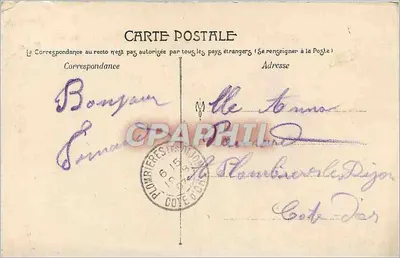 CARTE POSTALE
La Correspondance au recto n'est pas autorisée par tous les pays étrangers (Se renseigner à la Poste)
Correspondance
Adresse
Bonjour
Mlle Anna
CPARPHIL
PLOMBIERES LES DIJON
COTE D'OR
Plombières les Dijon
Cote d'or